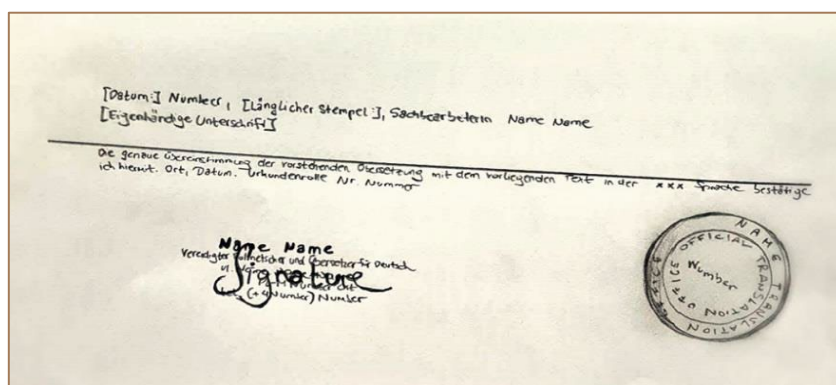 [Datum:] Number, [Länglicher Stempel:], Sachbearbeterin Name Name
[Eigenhändige Unterschrift]
Die genaue Übereinstimmung der vorstehenden Übersetzung mit dem vorliegenden Text in der xxx Sprache bestätige
ich hiermit. Ort, Datum. Urkundenrolle Nr. Nummer
Name Name
Vereidigter und Übersetzer für Deutsch
Signature
Number Ort
Number) Number
NAME TRANSLATION OFFICE
OFFICIAL TRANSLATION OFFICE
Number